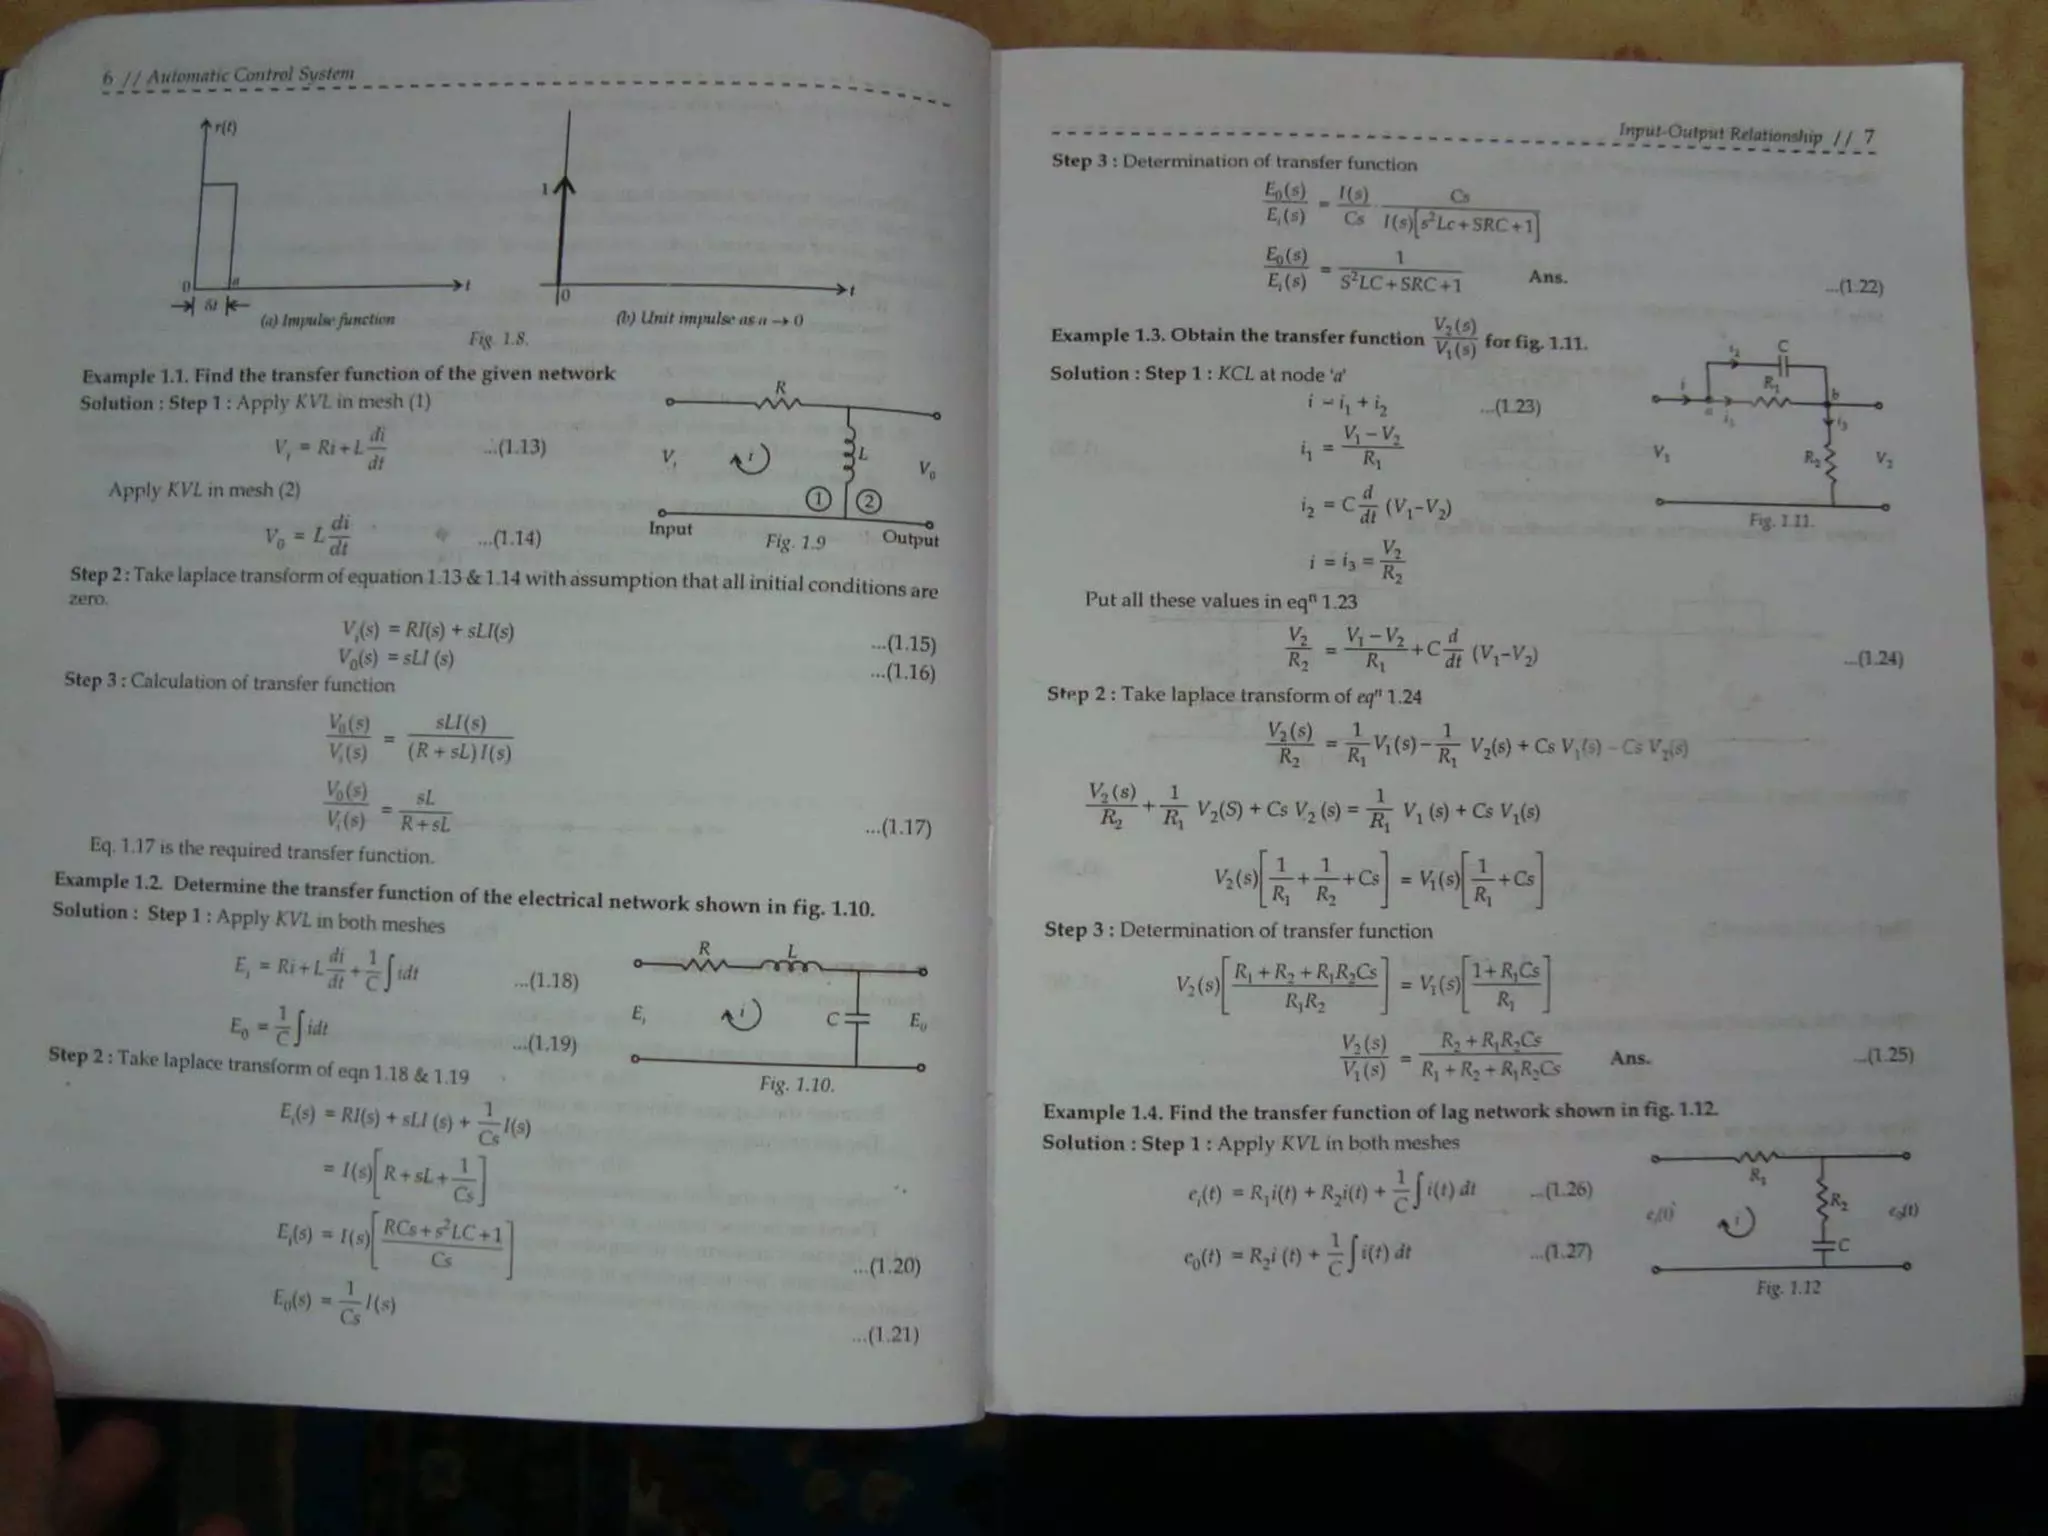 6 // Automatic Control System
r(t)
1
0 a t
0 t
δt
(a) Impulse function
(b) Unit impulse as a → 0
Fig. 1.8.
Example 1.1. Find the transfer function of the given network
Solution : Step 1 : Apply KVL in mesh (1)
V_i = Ri + L di/dt ...(1.13)
Apply KVL in mesh (2)
V_0 = L di/dt ...(1.14)
R
V_i i L V_0
① ②
Input Output
Fig. 1.9
Step 2 : Take laplace transform of equation 1.13 & 1.14 with assumption that all initial conditions are
zero.
V_i(s) = RI(s) + sLI(s) ...(1.15)
V_0(s) = sLI (s) ...(1.16)
Step 3 : Calculation of transfer function
V_0(s)/V_i(s) = sLI(s)/(R + sL) I(s)
V_0(s)/V_i(s) = sL/R + sL ...(1.17)
Eq. 1.17 is the required transfer function.
Example 1.2. Determine the transfer function of the electrical network shown in fig. 1.10.
Solution : Step 1 : Apply KVL in both meshes
E_i = Ri + L di/dt + 1/C ∫ idt ...(1.18)
E_0 = 1/C ∫ idt ...(1.19)
R L
E_i i C E_0
Fig. 1.10.
Step 2 : Take laplace transform of eqn 1.18 & 1.19
E_i(s) = RI(s) + sLI (s) + 1/Cs I(s)
= I(s)[R + sL + 1/Cs]
E_i(s) = I(s)[RCs + s²LC + 1/Cs] ...(1.20)
E_0(s) = 1/Cs I(s) ...(1.21)
Input-Output Relationship // 7
Step 3 : Determination of transfer function
E_0(s)/E_i(s) = I(s)/Cs · Cs/I(s)[s²Lc + SRC + 1]
E_0(s)/E_i(s) = 1/S²LC + SRC + 1 Ans. ...(1.22)
Example 1.3. Obtain the transfer function V_2(s)/V_1(s) for fig. 1.11.
Solution : Step 1 : KCL at node 'a'
i = i_1 + i_2 ...(1.23)
i_1 = V_1 – V_2/R_1
i_2 = C d/dt (V_1–V_2)
i = i_3 = V_2/R_2
i_2 C
i R_1 b
a i_1 i_3
V_1 R_2 V_2
Fig. 1.11.
Put all these values in eqⁿ 1.23
V_2/R_2 = V_1 – V_2/R_1 + C d/dt (V_1–V_2) ...(1.24)
Step 2 : Take laplace transform of eqⁿ 1.24
V_2(s)/R_2 = 1/R_1 V_1(s) – 1/R_1 V_2(s) + Cs V_1(s) – Cs V_2(s)
V_2(s)/R_2 + 1/R_1 V_2(S) + Cs V_2 (s) = 1/R_1 V_1 (s) + Cs V_1(s)
V_2(s)[1/R_1 + 1/R_2 + Cs] = V_1(s)[1/R_1 + Cs]
Step 3 : Determination of transfer function
V_2(s)[R_1 + R_2 + R_1R_2Cs/R_1R_2] = V_1(s)[1 + R_1Cs/R_1]
V_2(s)/V_1(s) = R_2 + R_1R_2Cs/R_1 + R_2 + R_1R_2Cs Ans. ...(1.25)
Example 1.4. Find the transfer function of lag network shown in fig. 1.12.
Solution : Step 1 : Apply KVL in both meshes
e_i(t) = R_1i(t) + R_2i(t) + 1/C ∫ i(t) dt ...(1.26)
e_0(t) = R_2i (t) + 1/C ∫ i(t) dt ...(1.27)
R_1
e_i(t) i R_2 e_0(t)
C
Fig. 1.12